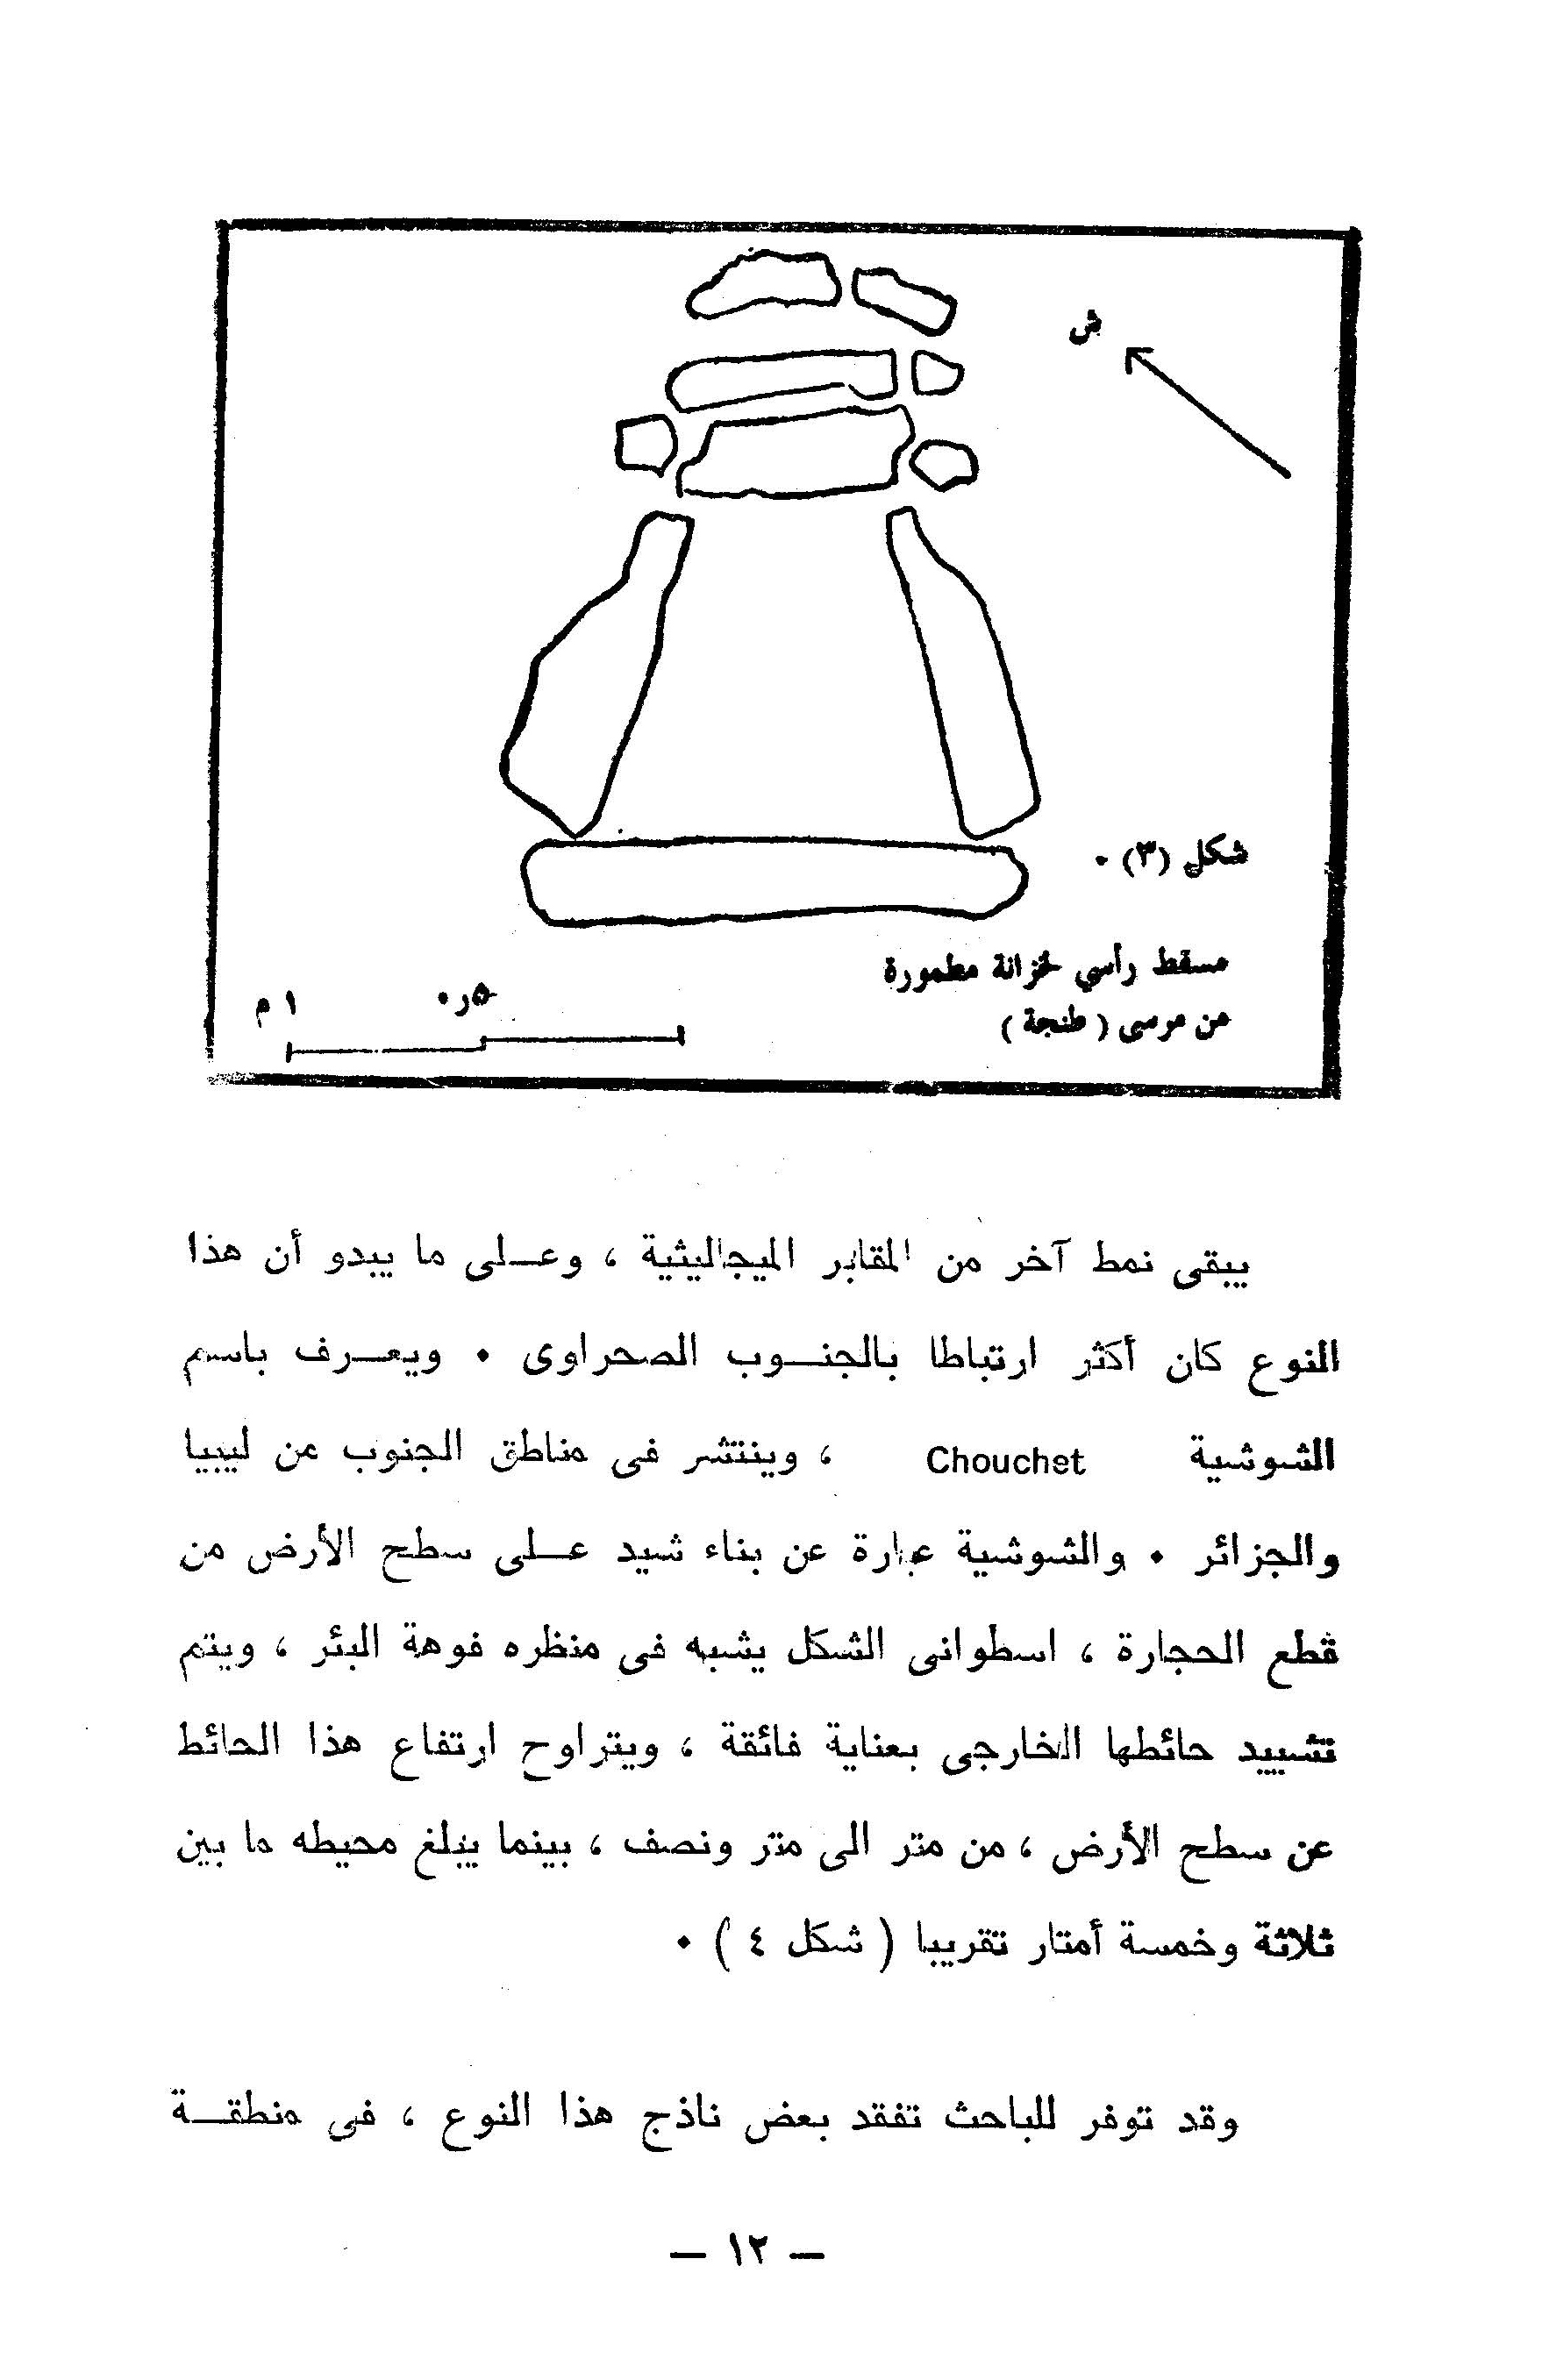 ش
شكل (٣) .
مسقط رأسي لخزانة مطمورة
من مرسى ( طنجة )
٥ر٠
١ م
يبقى نمط آخر من المقابر الميجاليثية ، وعـلى ما يبدو أن هذا
النوع كان أكثر ارتباطا بالجنــوب الصحراوى . ويعــرف باسم
الشوشية Chouchet ، وينتشر فى مناطق الجنوب من ليبيا
والجزائر . والشوشية عبارة عن بناء شيد عـلى سطح الأرض من
قطع الحجارة ، اسطوانى الشكل يشبه فى منظره فوهة البئر ، ويتم
تشييد حائطها الخارجى بعناية فائقة ، ويتراوح ارتفاع هذا الحائط
عن سطح الأرض ، من متر الى متر ونصف ، بينما يبلغ محيطه ما بين
ثلاثة وخمسة أمتار تقريبا ( شكل ٤ ) .
وقد توفر للباحث تفقد بعض ناذج هذا النوع ، فى منطقــة
— ١٢ —